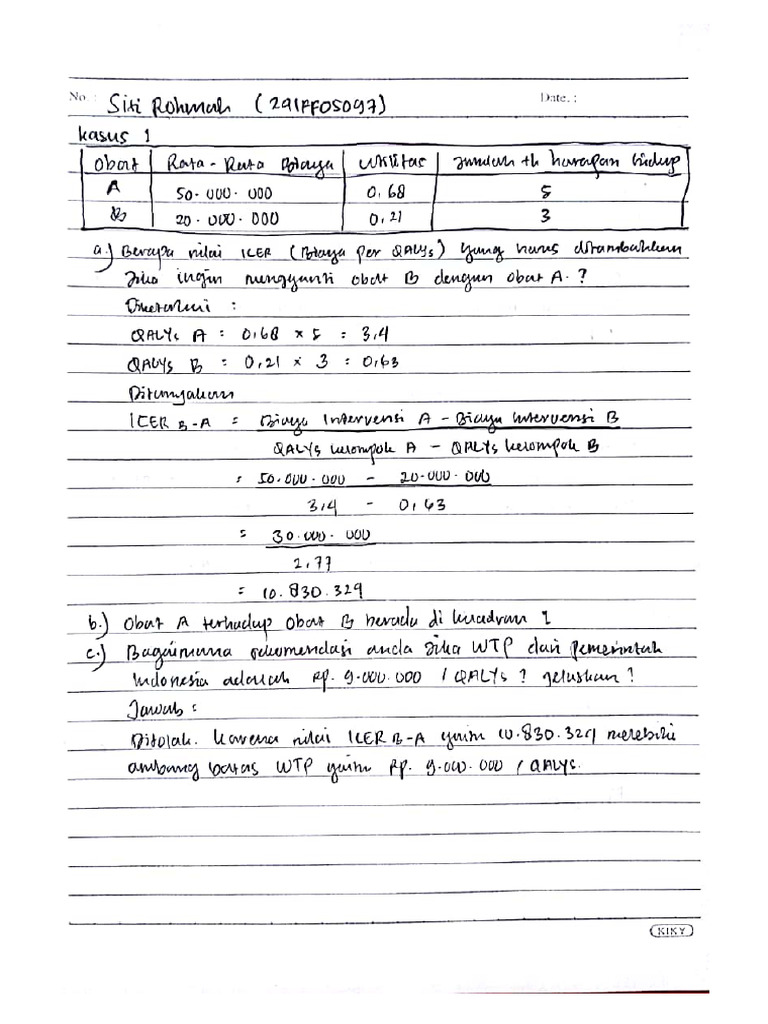 No. : Siti Rohmah (241FF05097) Date. :
Kasus 1
Obat Rata-Rata Biaya Utilitas Jumlah th harapan hidup
A 50.000.000 0,68 5
B 20.000.000 0,21 3
a.) Berapa nilai ICER (Biaya per QALYs) yang harus ditambahkan
Jika ingin mengganti obat B dengan obat A. ?
Diketahui :
QALYs A = 0,68 x 5 = 3,4
QALYs B = 0,21 x 3 = 0,63
Ditanyakan
ICER B-A = Biaya Intervensi A - Biaya Intervensi B
QALYs kelompok A - QALYs kelompok B
= 50.000.000 - 20.000.000
3,4 - 0,63
= 30.000.000
2,77
= 10.830.329
b.) Obat A terhadap Obat B berada di kuadran 1
c.) Bagaimana rekomendasi anda Jika WTP dari pemerintah
Indonesia adalah Rp. 9.000.000 / QALYs ? jelaskan ?
Jawab :
Ditolak. karena nilai ICER B-A yaitu 10.830.329 melebihi
ambang batas WTP yaitu Rp. 9.000.000 / QALYs.
KIKY